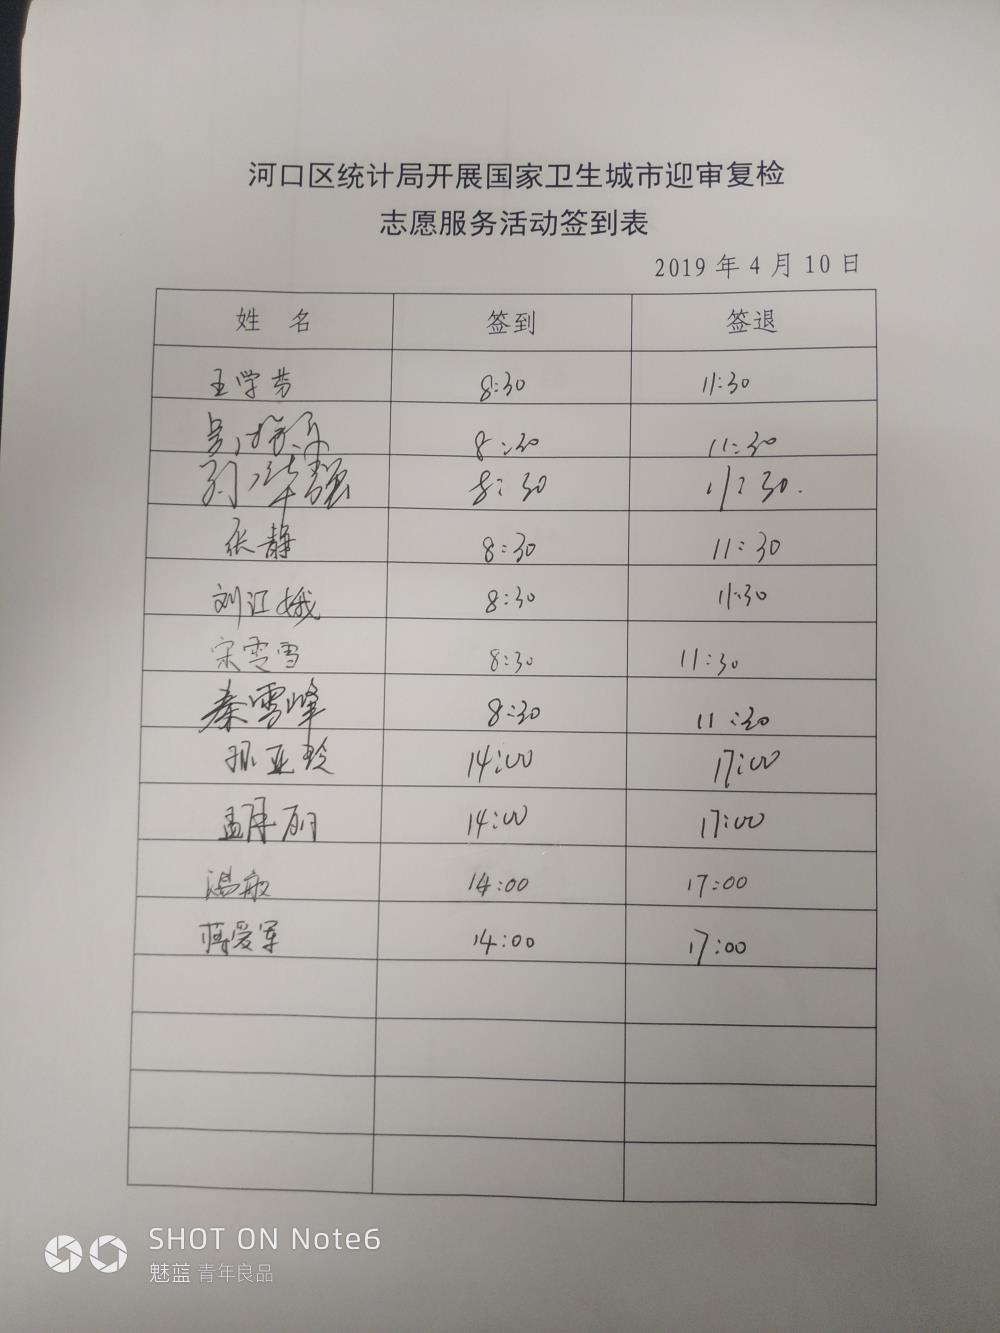 河口区统计局开展国家卫生城市迎审复检
志愿服务活动签到表
2019年4月10日
姓 名 签到 签退
王学芳 8:30 11:30
8:30 11:30
刘华强 8:30 11:30.
张静 8:30 11:30
刘江娥 8:30 11:30
宋雯雪 8:30 11:30
秦雪峰 8:30 11:30
亚玲 14:00 17:00
孟 丽 14:00 17:00
冯敏 14:00 17:00
蒋爱军 14:00 17:00
SHOT ON Note6
魅蓝 青年良品